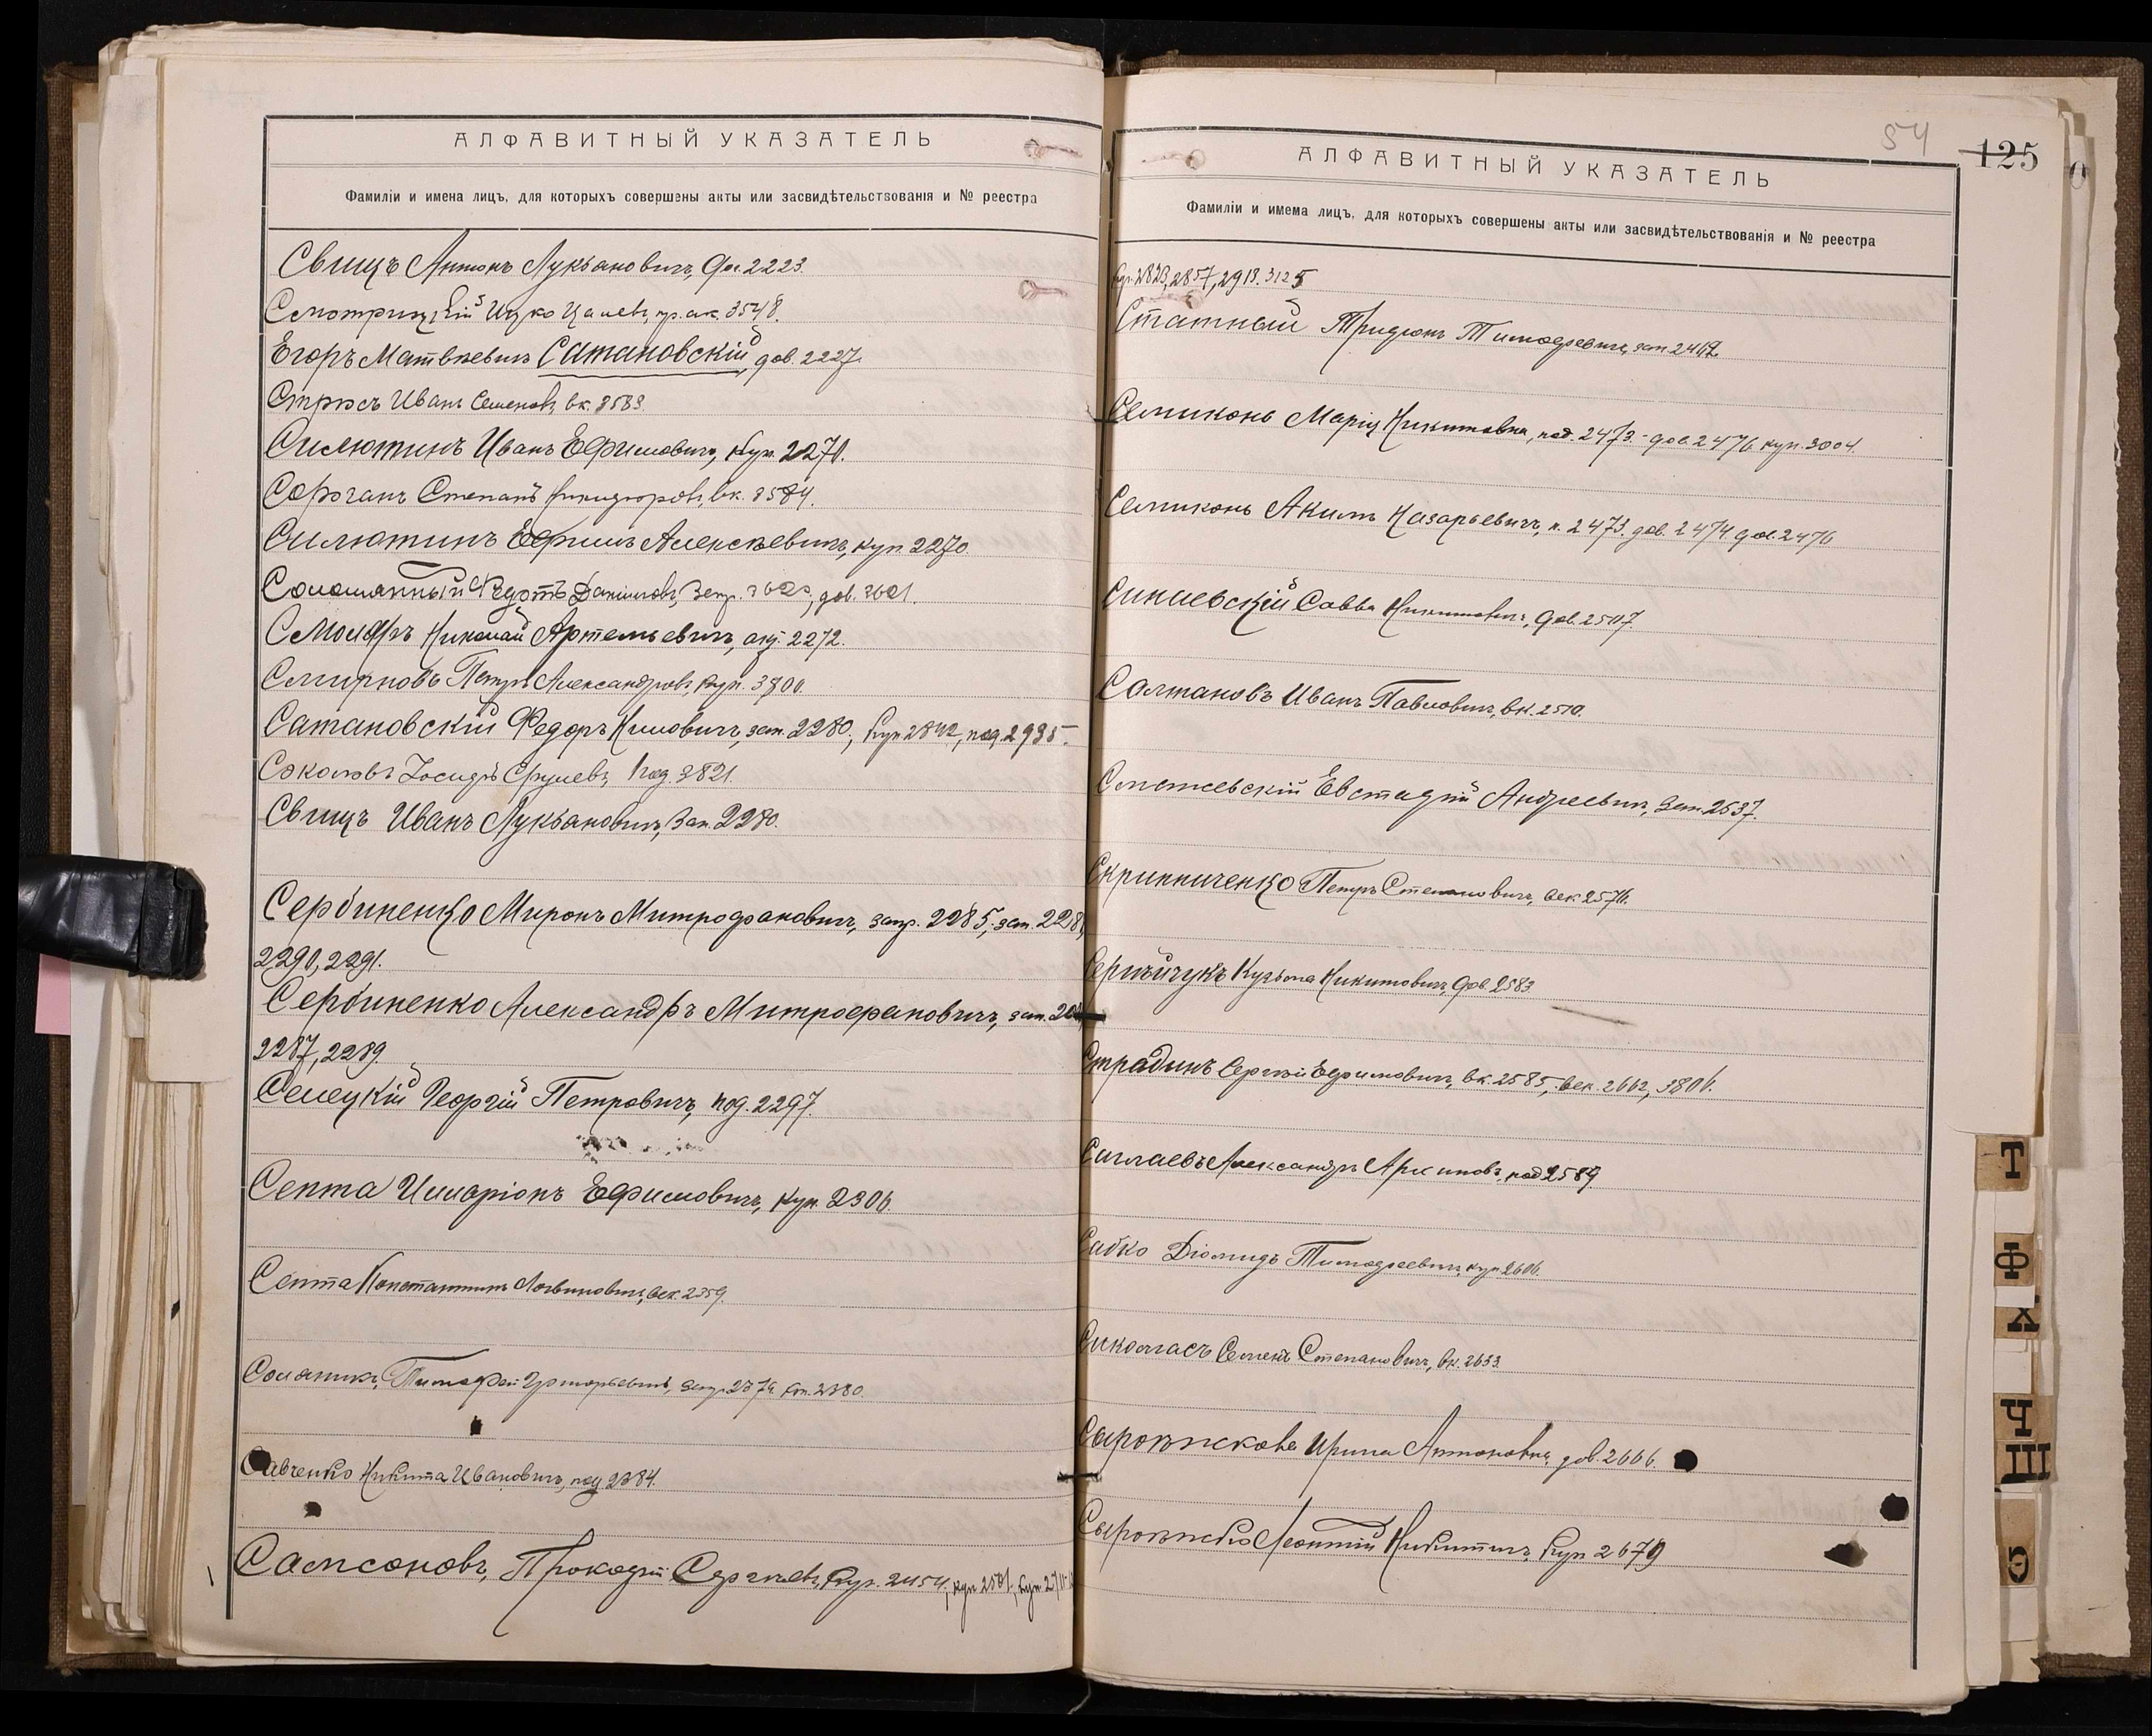 АЛФАВИТНЫЙ УКАЗАТЕЛЬ
Фамиліи и имена лицъ, для которыхъ совершены акты или засвидѣтельствованія и № реестра
Свищъ Антонъ Лукьяновичъ, дов. 2223.
Смотрицкій Ицко 3548.
Егоръ Матвѣевичъ Сатановскій, дов. 2227.
Стрюсъ Иванъ Семеновъ, вк. 3583.
Силютинъ Иванъ Ефимовичъ, куп. 2270.
Сорочанъ Степанъ Никифоровъ, вк. 3584.
Силютинъ Ефимъ Алексѣевичъ, куп. 2270.
Соломянный Федотъ Даниловъ, дов. 3601.
Смоляръ Николай Артемьевичъ, 2272.
Смирновъ Петръ Александровъ, куп. 3700.
Сатановскій Федоръ Ниловичъ, зап. 2280, куп. 2842, под. 2935.
Соколовъ Іосифъ Срулевъ, под. 3821.
Свищъ Иванъ Лукьяновичъ, зап. 2280.
Сербиненко Миронъ Митрофановичъ, запр. 2285, зап.
2290, 2291.
Сербиненко Александръ Митрофановичъ, зап.
2287, 2289.
Селецкій Георгій Петровичъ, под. 2297.
Септа Иларіонъ Ефимовичъ, куп. 2306.
Септа Константинъ Логвиновичъ, век. 2359.
Соляникъ, Тимофей Григорьевичъ, 2380.
Савченко Никита Ивановичъ, под. 2384.
Самсоновъ, Прокофій Сергѣевъ, куп. 2454, куп. 2501, куп.
54
125
АЛФАВИТНЫЙ УКАЗАТЕЛЬ
Фамиліи и имема лицъ, для которыхъ совершены акты или засвидѣтельствованія и № реестра
куп. 2823, 2857, 2913. 3125
Статный Трифонъ Тимофеевичъ, зап.
Семиконь Марія Никитовна, под. 2473. дов. 2476 куп. 3004.
Семиконь Акимъ Назарьевичъ, п. 2473. дов. 2474 дов. 2476
Синиевскій Савва Никитовичъ, дов.
Солтановъ Иванъ Павловичъ, вк. 2510.
Евстафій Андреевичъ, зап. 2537.
Скрипниченко Петръ Степановичъ, век. 2576.
Сергѣйчукъ Кузьма Никитовичъ, дов. 2583
Страдинъ Сергѣй Ефимовичъ, вк. 2585, век. 2662, 3806.
Александръ под. 2589
Сабко Діомидъ Тимофеевичъ, куп. 2606.
Семенъ Степановичъ, вк. 2633.
Сыровѣжкова Ирина Антоновна, дов. 2666.
Сыровѣжко Леонтій Никитичъ, куп. 2679
Т
Ф
Х
Ч
Ш
Э